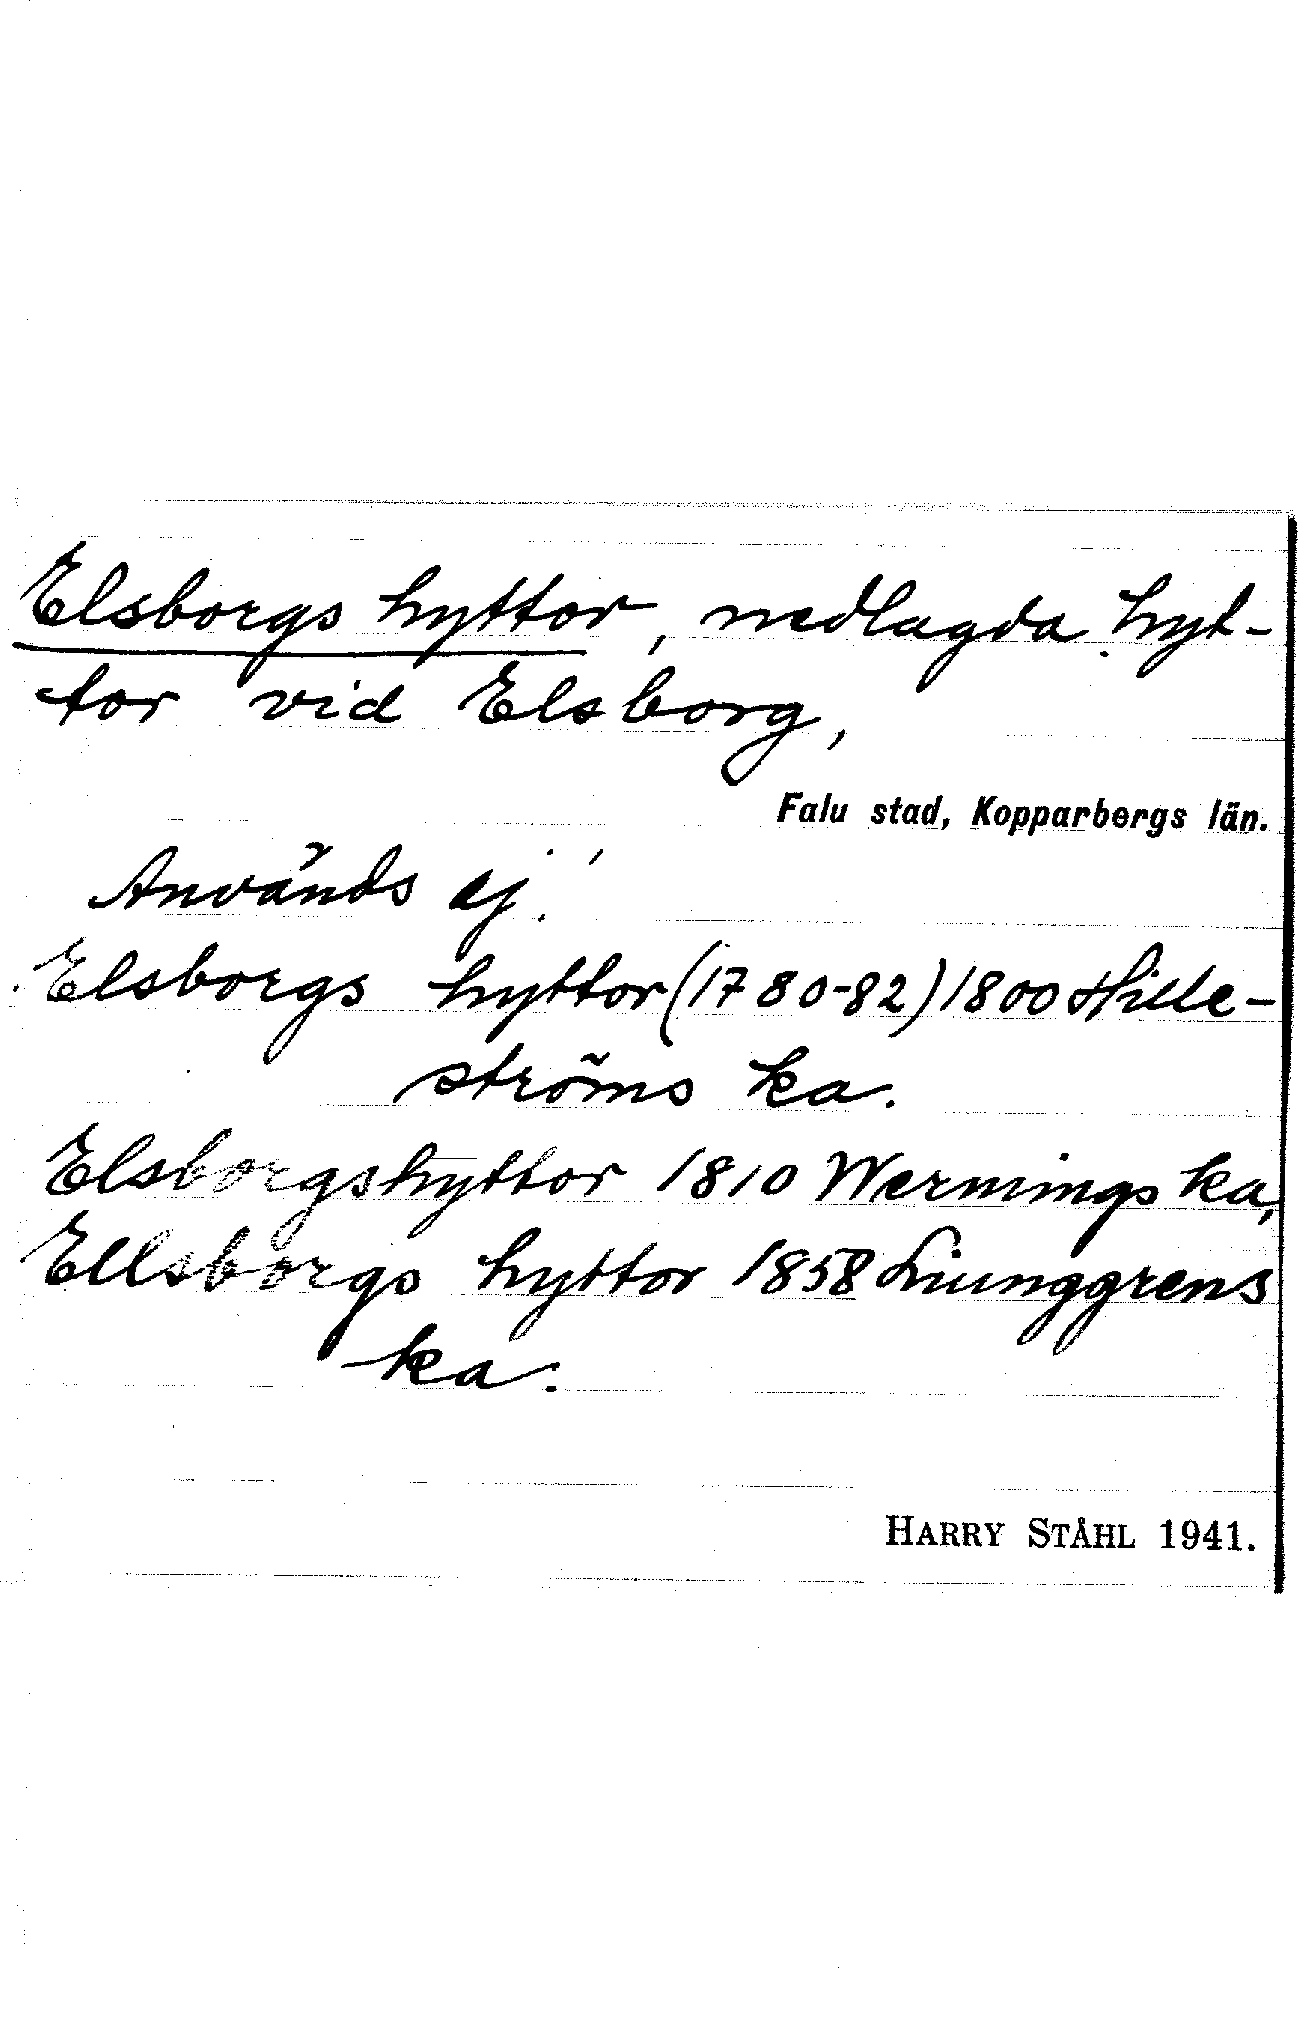 Elsborgs hyttor, nedlagda hyt-
tor vid Elsborg,
Falu stad, Kopparbergs län.
Används ej.
Elsborgs hyttor (1780-82) 1800 Hille-
ströms ka.
Elsborgshyttor 1810 Wernings ka,
Ellsborgs hyttor 1858 Liunggrens
ka.
HARRY STÅHL 1941.